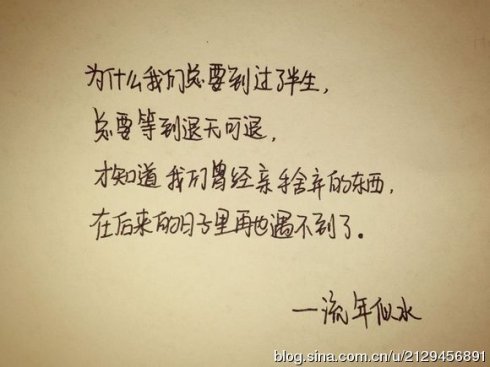 为什么我们总要到过了半生，
总要等到退无可退，
才知道我们曾经亲手舍弃的东西，
在后来的日子里再也遇不到了。
—流年似水
blog.sina.com.cn/u/2129456891